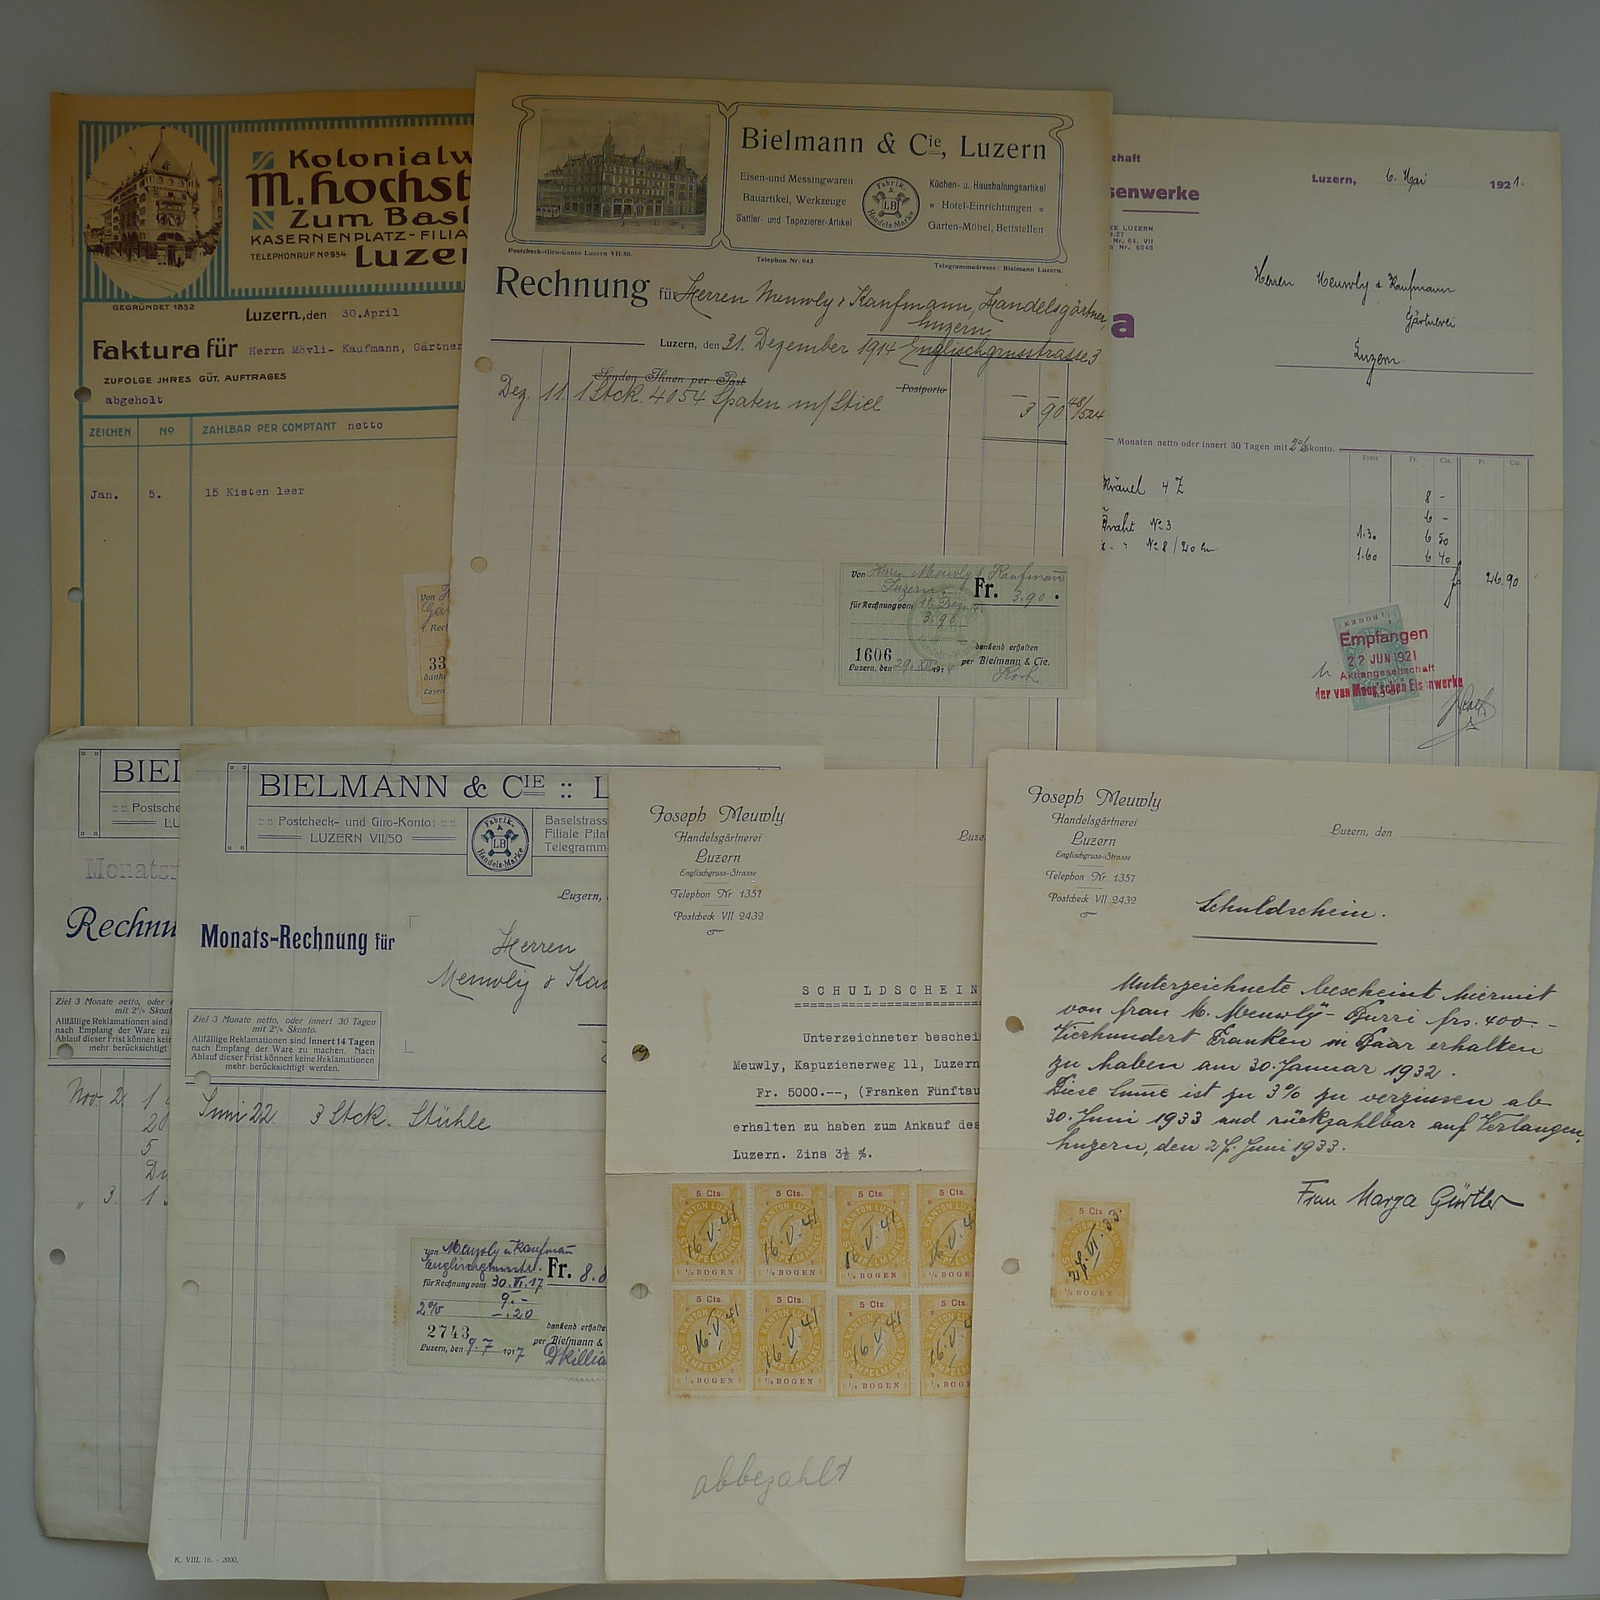 Kolonialw
M. Hochst
Zum Basl
KASERNENPLATZ-FILIA
TELEPHONRUF No 954 Luzer
GEGRÜNDET 1852
Luzern, den 30. April
Faktura für Herrn Mövli- Kaufmann, Gärtner
ZUFOLGE JHRES GÜT. AUFTRAGES
abgeholt
ZEICHEN No ZAHLBAR PER COMPTANT netto
Jan. 5. 15 Kisten leer
Von
33
Bielmann & Cie, Luzern
Eisen-und Messingwaren
Bauartikel, Werkzeuge
Sattler- und Tapezierer-Artikel
Fabrik- & LB Handels-Marke
Küchen- u. Haushaltungsartikel
" Hotel-Einrichtungen "
Garten-Möbel, Bettstellen
Postcheck-Giro-Konto Luzern VII/50.
Telephon Nr. 643
Telegrammadresse: Bielmann Luzern.
Rechnung für Herren Meuwly & Kaufmann, Handelsgärtner,
Luzern
Luzern, den 31. Dezember 1914 Englischgrussstrasse 3
Senden Ihnen per Post
Postporto
Dez. 11. 1 Stck. 4054 Spaten m/ Stiel 3 90
von Herrn Meuwly & Kaufmann
Luzern Fr. 3.90.
für Rechnung vom 31. Dezb.
3.90
1606 dankend erhalten
Luzern, den per Bielmann & Cie.
Koch
chaft
senwerke
Luzern, 6. Mai 1921.
LUZERN
Nr. 64, VII
Herren Meuwly & Kaufmann
Gärtnerei
Luzern
a
Monaten netto oder innert 30 Tagen mit 2% Skonto.
Fr. Cts. Fr. Cts.
4 Z 8 -
6 -
Draht No 3 1.30 6 50
No 8 / 20 1.60 6 40
26.90
Empfangen
22 JUN 1921
Aktiengesellschaft
der von Moos'schen Eisenwerke
BIEL
Postsche
LU
Monatsr
Rechnu
Ziel 3 Monate netto, oder
mit 2% Skont
Allfällige Reklamationen sind
nach Empfang der Ware zu
Ablauf dieser Frist können
mehr berücksichtigt
Nov. 2. 1
20
5
" 3. 1
BIELMANN & CIE :: L
Postcheck- und Giro-Konto:
LUZERN VII/50
Fabrik- & LB Handels-Marke
Baselstrass
Filiale Pilat
Telegramm-
Luzern,
Monats-Rechnung für
Herren
Meuwly & Kau
Ziel 3 Monate netto, oder innert 30 Tagen
mit 2% Skonto.
Allfällige Reklamationen sind innert 14 Tagen
nach Empfang der Ware zu machen. Nach
Ablauf dieser Frist können keine Reklamationen
mehr berücksichtigt werden.
Juni 22. 3 Stck. Stühle
von Meuwly u Kaufmann
Englischgrussstr. Fr. 8.8
für Rechnung vom 30.VI.17
9.-
2% -.20
2743 dankend erhalte
Luzern, den 9.7 1917 per Bielmann &
K. VIII. 16. - 2000.
Joseph Meuwly
Handelsgärtnerei
Luzern
Englischgruss-Strasse
Telephon Nr 1357
Postcheck VII 2432
Luze
SCHULDSCHEIN
Unterzeichneter beschei
Meuwly, Kapuzienerweg 11, Luzern
Fr. 5000.--, (Franken Fünftau
erhalten zu haben zum Ankauf des
Luzern. Zins 3½ %.
5 Cts. 5 Cts. 5 Cts. 5 Cts.
KANTON LUZERN STEMPELMARKE
16.V.41 16.V.41 16.V.41 16.V.4
¼ BOGEN ¼ BOGEN ¼ BOGEN ¼ BOGEN
5 Cts. 5 Cts. 5 Cts. 5 Cts.
16.V.41 16.V.41 16.V.41 16.V.4
¼ BOGEN ¼ BOGEN ¼ BOGEN ¼ BOGEN
abbezahlt
Joseph Meuwly
Handelsgärtnerei
Luzern
Englischgruss-Strasse
Telephon Nr 1357
Postcheck VII 2432
Luzern, den
Schuldschein.
Unterzeichnete bescheint hiermit
von Frau M. Meuwly-Burri frs. 400.-
Vierhundert Franken in Baar erhalten
zu haben am 30. Januar 1932.
Diese Sume ist zu 3% zu verzinsen ab
30. Juni 1933 und rückzahlbar auf Verlangen,
Luzern, den 27. Juni 1933.
Frau Marga Gürtler
5 Cts.
27.VI.33.
¼ BOGEN